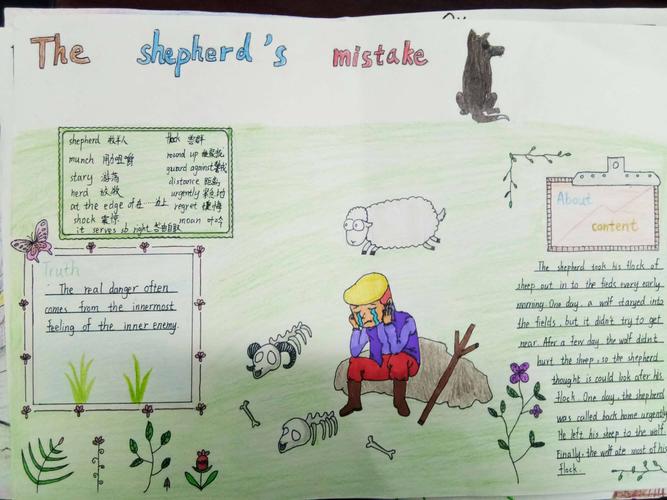 The shepherd's mistake
shepherd 牧羊人
munch 用力咀嚼
stary 游荡
herd 放牧
at the edge of 在…边上
shock 震惊
it serves sb right 咎由自取
flock 羊群
round up
guard against
distance 距离
urgently 紧急地
regret 懊悔
moan 呻吟
Truth
The real danger often
comes from the innermost
feeling of the inner enemy.
About
content
The shepherd took his flock of
sheep out in to the fieds every early
morning. One day, a wolf staryed into
the fields, but it didn't try to get
near. Afer a few day, the wolf didn't
hurt the sheep, so the shepherd
thought is could look afer his
flock. One day, the shepherd
was called back home urgently
He left his sheep to the wolf.
Finally, the wolf ate most of his
flock.